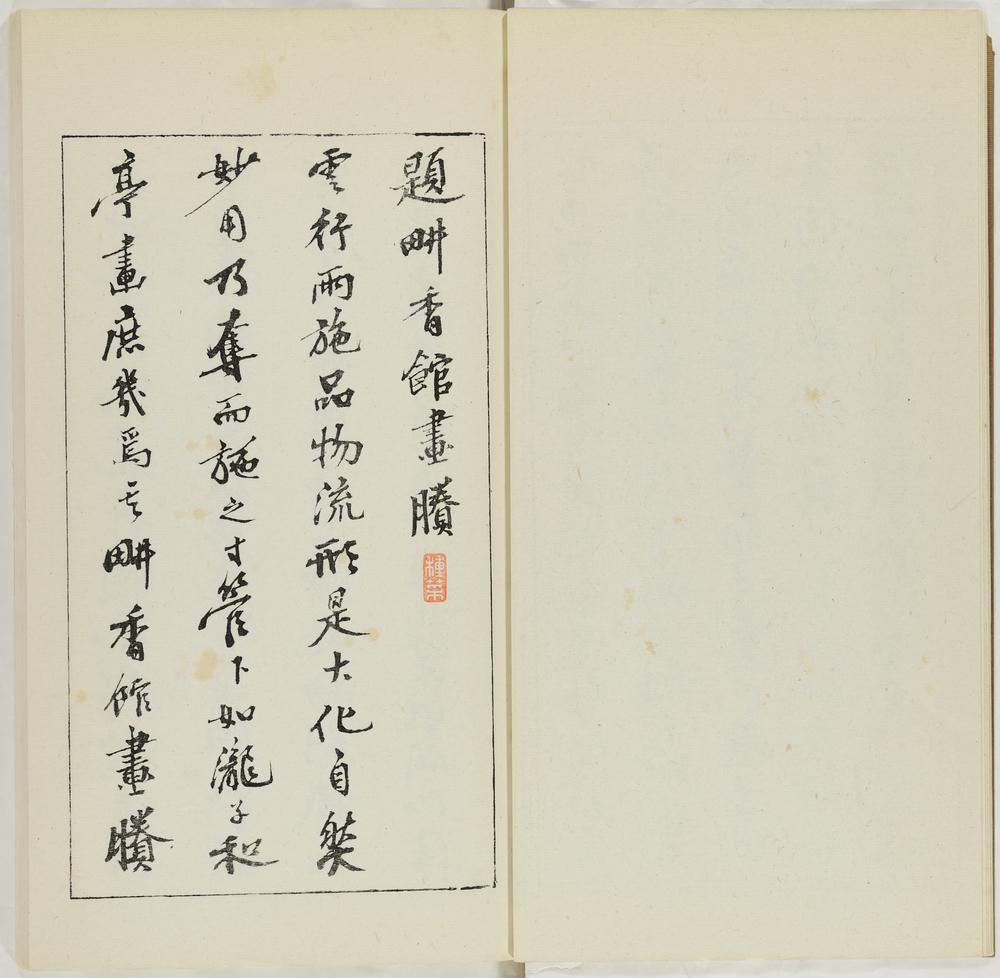 題畊香館畫賸
種菜
雲行雨施品物流形是大化自然
妙用乃奪而施之寸管下如瀧子和
亭畫庶幾焉其畊香館畫賸